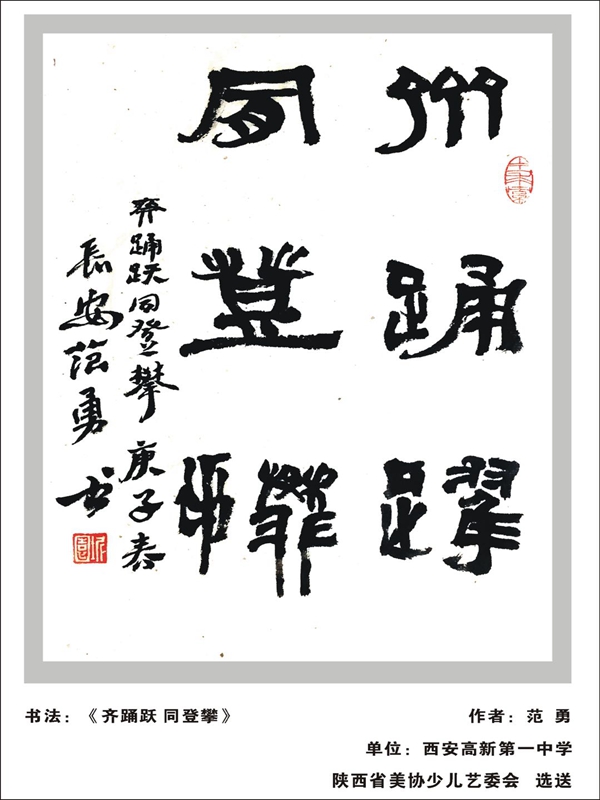 齊踊躍
同登攀
齐踊跃同登攀 庚子春
長安范勇书
书法：《齐踊跃 同登攀》
作者：范 勇
单位：西安高新第一中学
陕西省美协少儿艺委会 选送